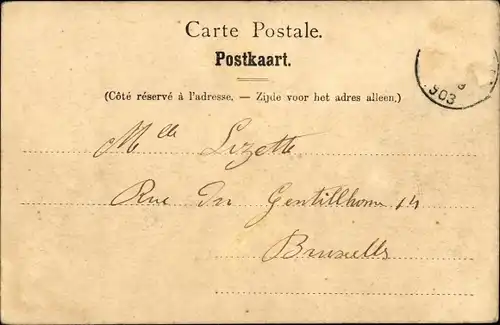 Carte Postale.
Postkaart.
(Côté réservé à l'adresse. — Zijde voor het adres alleen.)
903
Mlle Lizette
Rue du Gentillhome 14
Bruxells